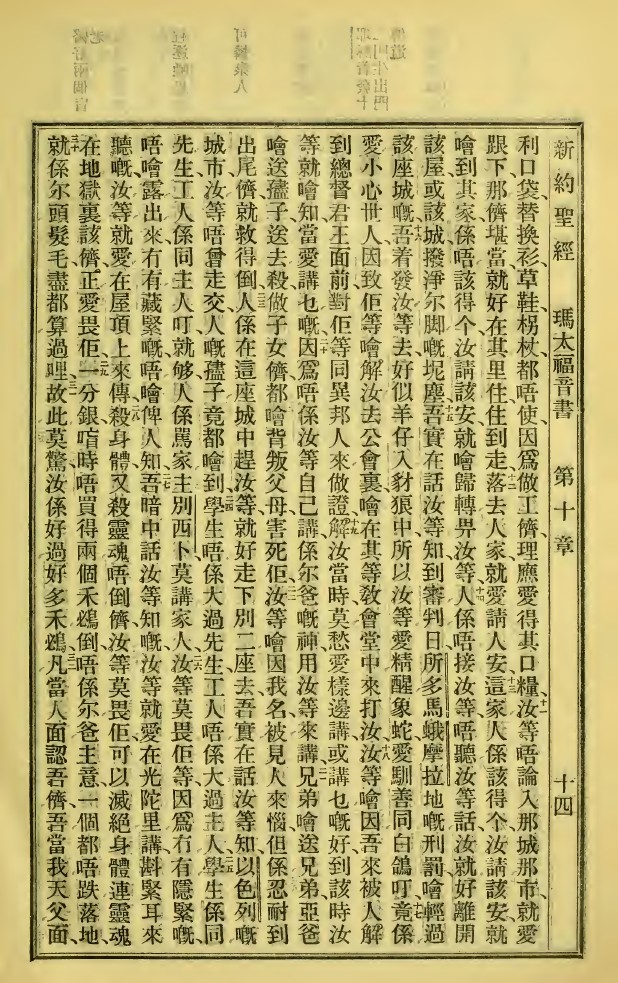 新約聖經 瑪太福音書 第十章 十四
利口袋、替換衫、草鞋、柺杖、都唔使、因爲做工儕、理應愛得其口糧、十一汝等唔論入那城那市、就愛
跟下那儕堪當、就好在其里住、住到走落去、十二人家就愛請人安、十三這家人係該得个、汝請該安、就
噲到其家、係唔該得个、汝請該安、就噲歸轉畀汝等、十四人係唔接汝等、唔聽汝等話、汝就好離開
該屋或該城、撥淨尔脚嘅坭塵、十五吾實在話汝等知、到審判日、所多馬蛾摩拉地嘅刑罰、噲輕過
該座城嘅、十六吾着發汝等去、好似羊仔入豺狼中、所以汝等愛精醒象蛇、愛馴善同白鴿、十七叮竟係
愛小心世人、因致佢等噲解汝去公會裏、噲在其等敎會堂中來打汝、十八汝等噲因吾來被人解
到總督君王面前、對佢等同異邦人來做證、十九解汝當時、莫愁愛樣邊講、或講乜嘅好、到該時汝
等就噲知當愛講乜嘅、二十因爲唔係汝等自己講、係尔爸嘅神、用汝等來講、二一兄弟噲送兄弟、亞爸
噲送孻子、送去殺、做子女儕、都噲背叛父母、害死佢、二二汝等噲因我名、被見人來惱、但係忍耐到
出尾儕、就救得倒、二三人係在這座城中趕汝等、就好走下別二座去、吾實在話汝等知、以色列嘅
城市、汝等唔曾走交、人嘅孻子竟都噲到、二四學生唔係大過先生、工人唔係大過主人、二五學生係同
先生、工人係同主人叮就够、人係罵家主別西卜、莫講家人、二六汝等莫畏佢等、因爲冇有隱緊嘅、
唔噲露出來、冇有藏緊嘅、唔噲俾人知、二七吾暗中話汝等知嘅、汝等就愛在光陀里講、斟緊耳來
聽嘅、汝等就愛在屋頂上來傳、二八殺身體又殺靈魂唔倒儕、汝等莫畏、佢可以滅絕身體連靈魂
在地獄裏該儕、正愛畏佢、二九一分銀唷時、唔買得兩個禾鷂倒、唔係尔爸主意、一個都唔跌落地、
三十就係尔頭髮毛、盡都算過哩、三一故此莫驚、汝係好過好多禾鷂、三二凡當人面認吾儕、吾當我天父面、